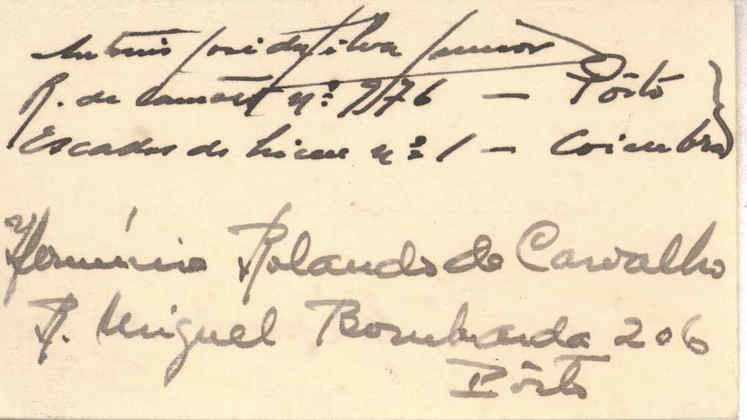 António José da Silva Junior
R. de Camões nº 976 — Pôrto
Escadas do Liceu nº 1 — Coimbra
Hermínio Rolando de Carvalho
R. Miguel Bombarda 206
Pôrto